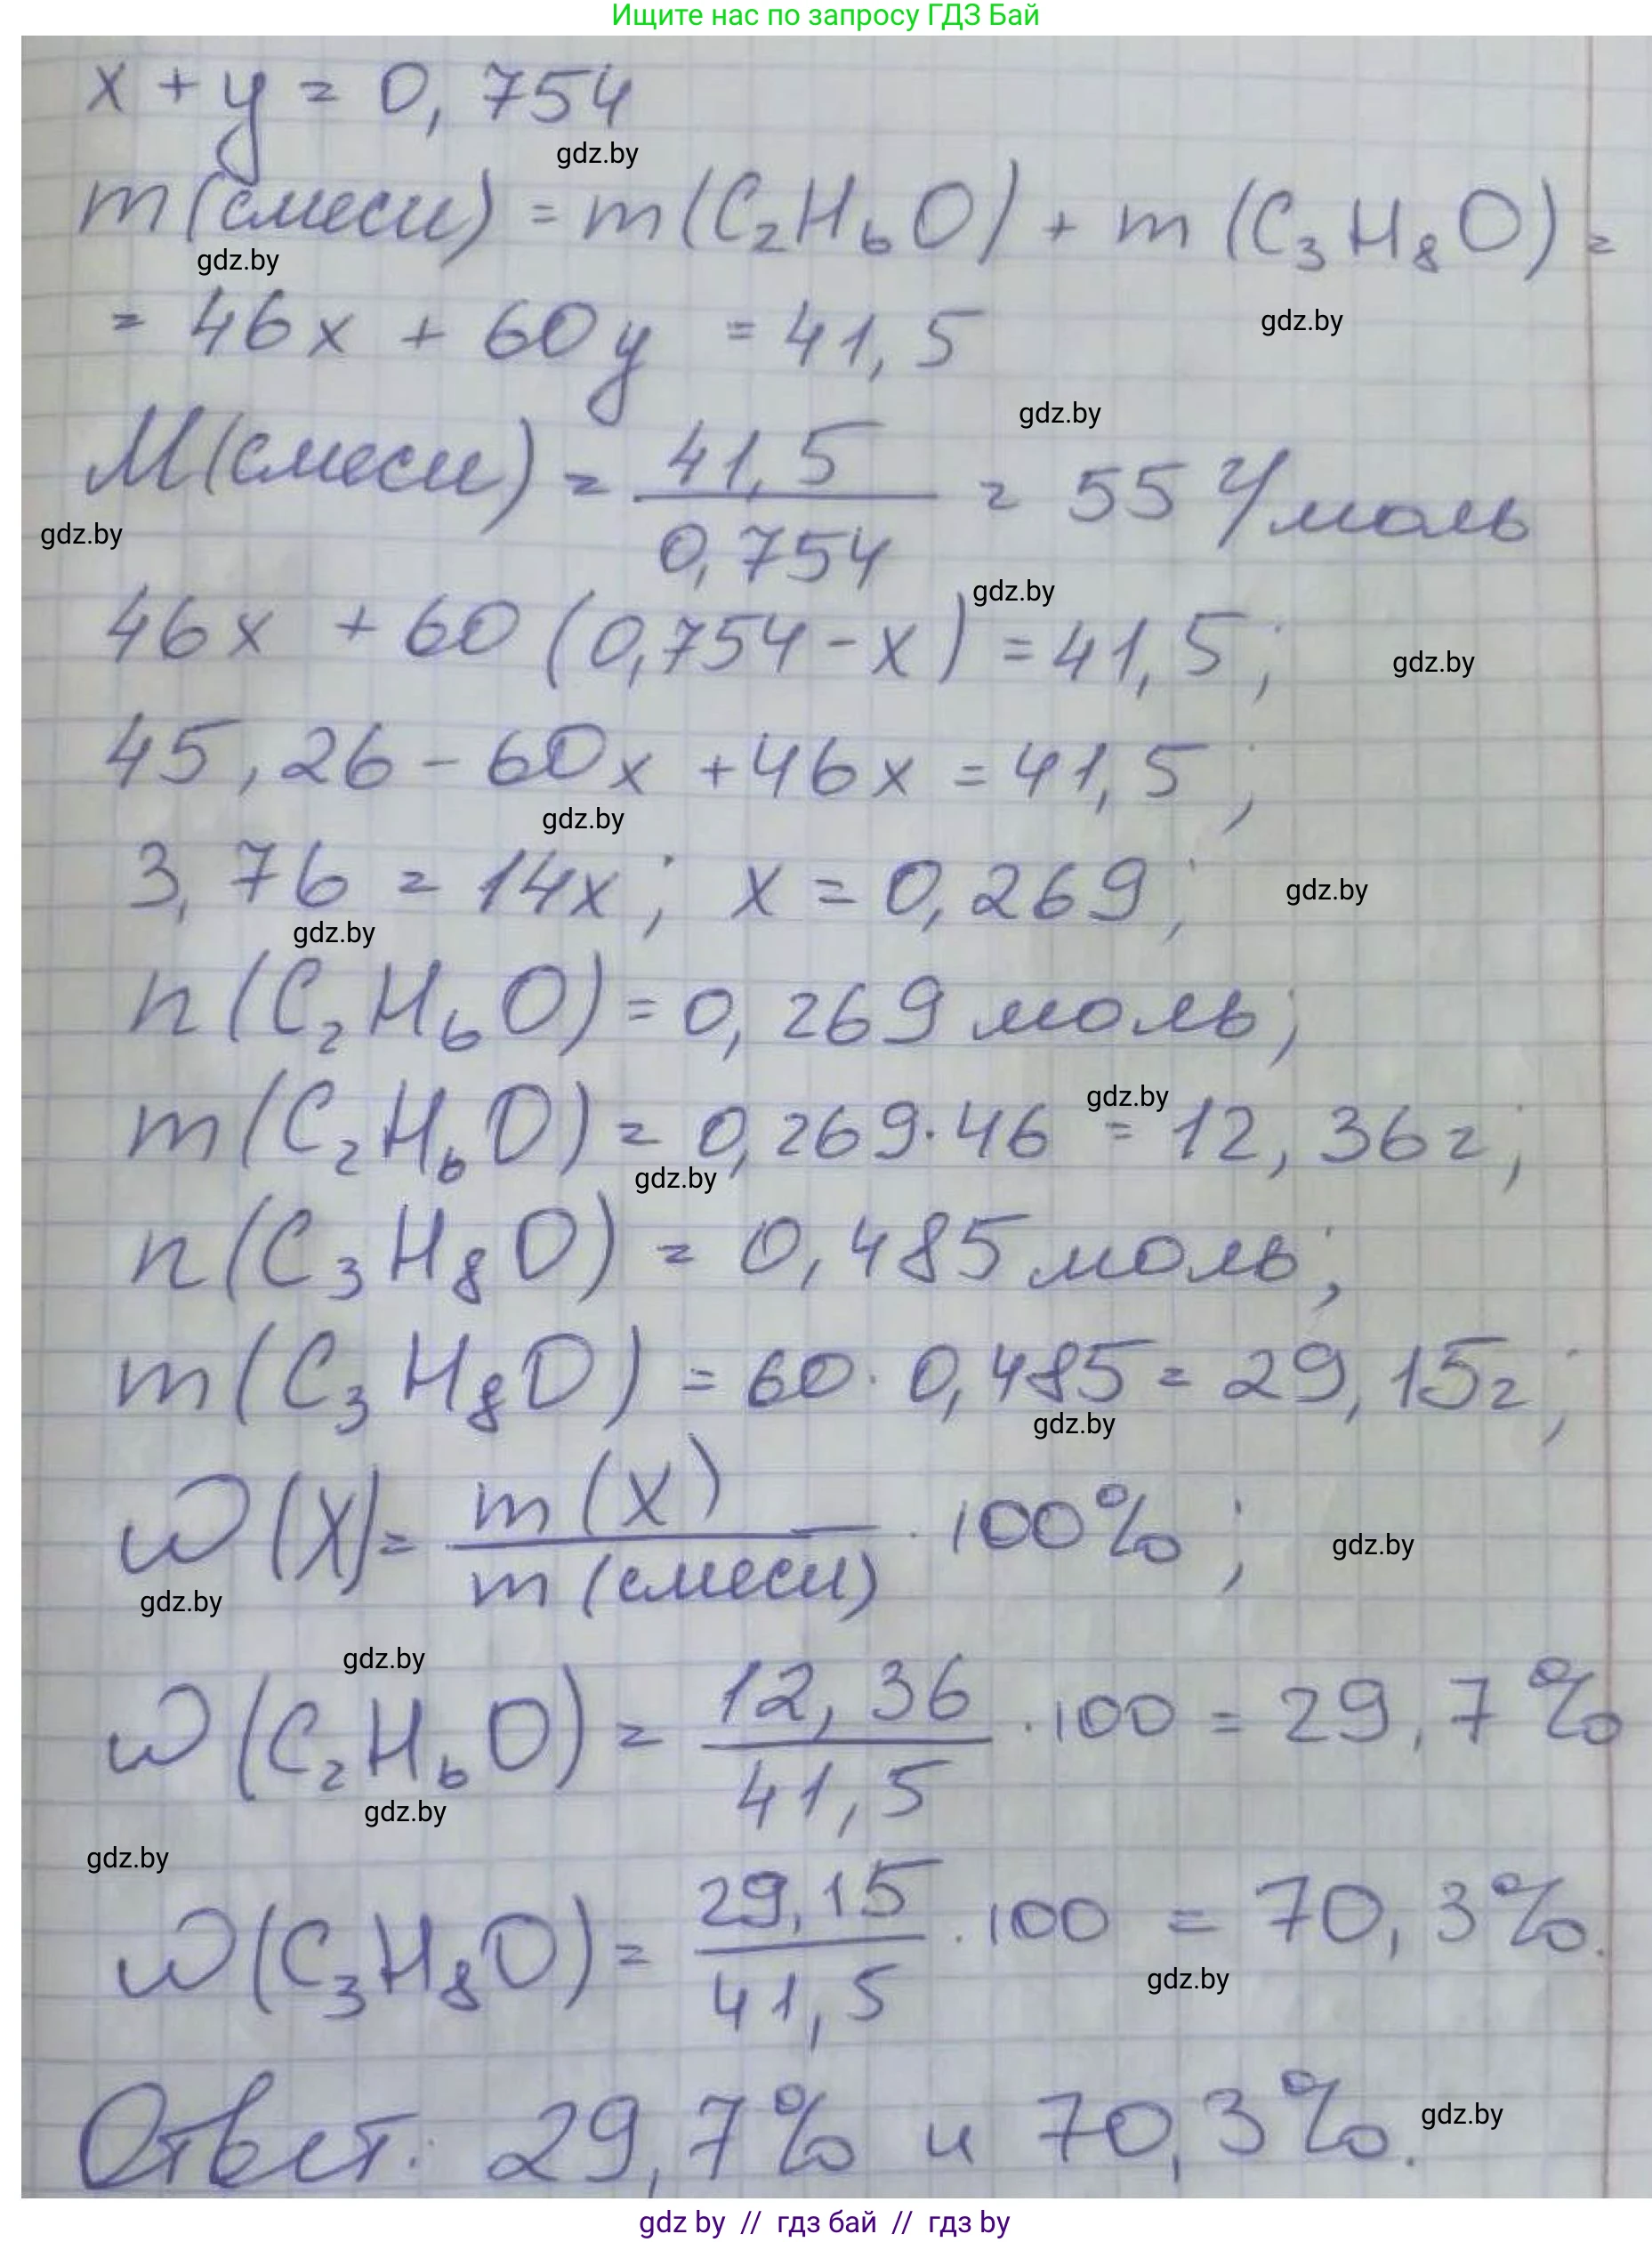 Ищите нас по запросу ГДЗ Бай
x + y = 0,754
gdz.by
m(смеси) = m(C₂H₆O) + m(C₃H₈O) =
gdz.by
= 46x + 60y = 41,5
gdz.by
gdz.by
M(смеси) = 41,5 / 0,754 = 55 г/моль
gdz.by
gdz.by
46x + 60(0,754 - x) = 41,5;
gdz.by
45,26 - 60x + 46x = 41,5;
gdz.by
3,76 = 14x; x = 0,269;
gdz.by
gdz.by
n(C₂H₆O) = 0,269 моль;
gdz.by
m(C₂H₆O) = 0,269·46 = 12,36г;
gdz.by
n(C₃H₈O) = 0,485 моль;
m(C₃H₈O) = 60·0,485 = 29,15г;
gdz.by
ω(X) = m(X) / m(смеси) · 100%;
gdz.by
gdz.by
gdz.by
ω(C₂H₆O) = 12,36 / 41,5 · 100 = 29,7%
gdz.by
gdz.by
ω(C₃H₈O) = 29,15 / 41,5 · 100 = 70,3%.
gdz.by
Ответ: 29,7% и 70,3%.
gdz.by
gdz by // гдз бай // гдз by